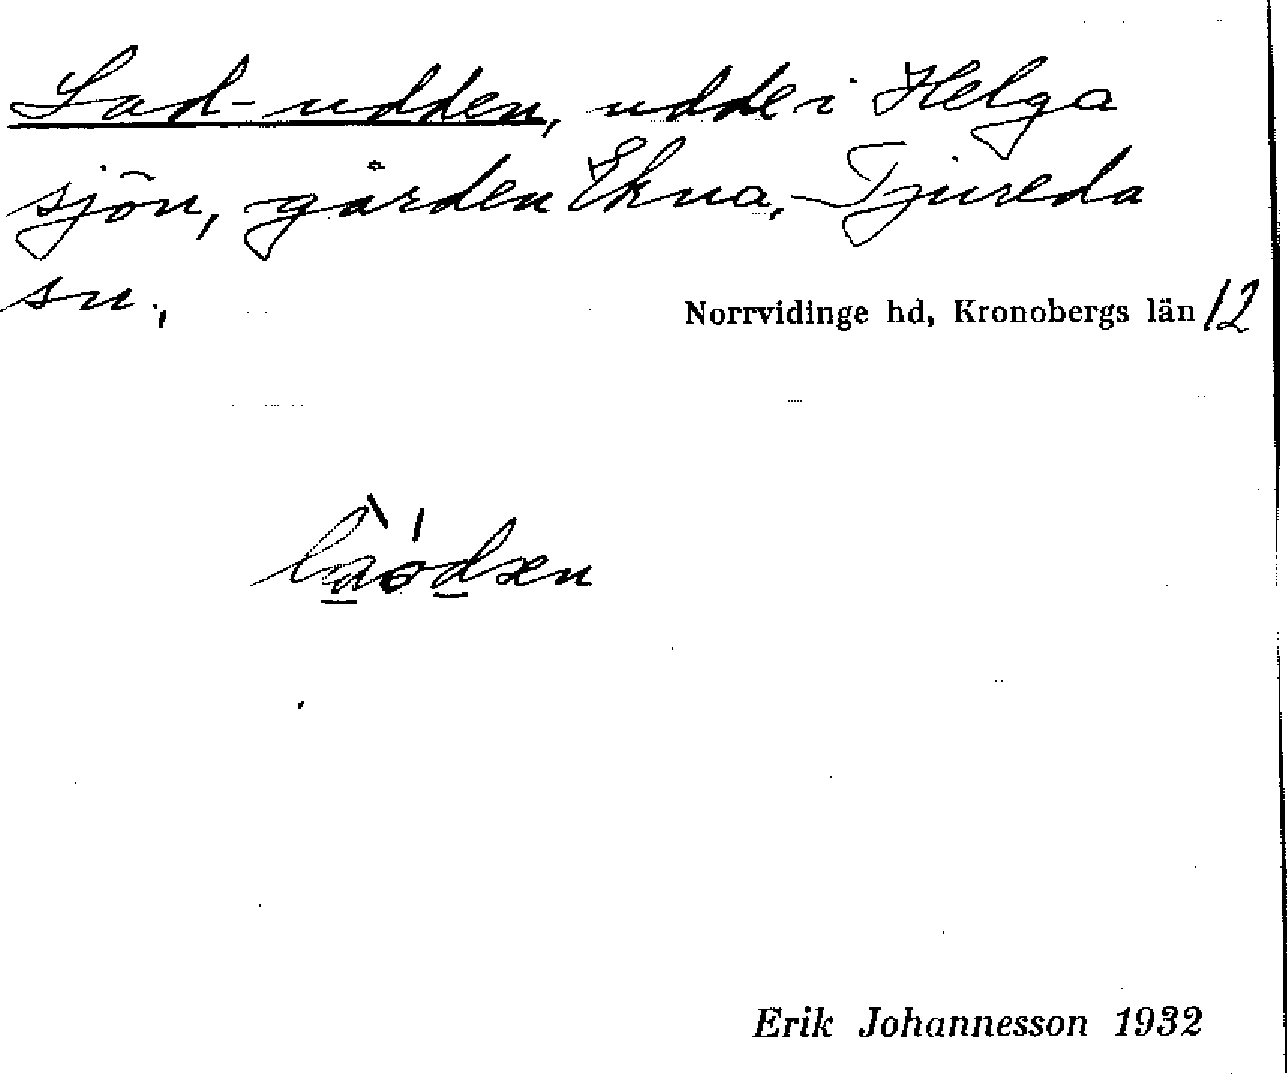 Lad-udden, udde i Helga
sjön, gården Ekna, Tjureda
sn.,
Norrvidinge hd, Kronobergs län 12
Erik Johannesson 1932